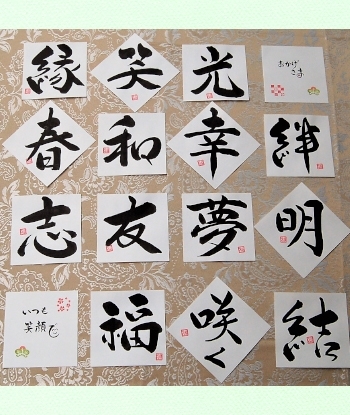 縁
笑
光
おかげ
さま
春
和
幸
絆
志
友
夢
明
いつも
笑顔で
福
咲く
結